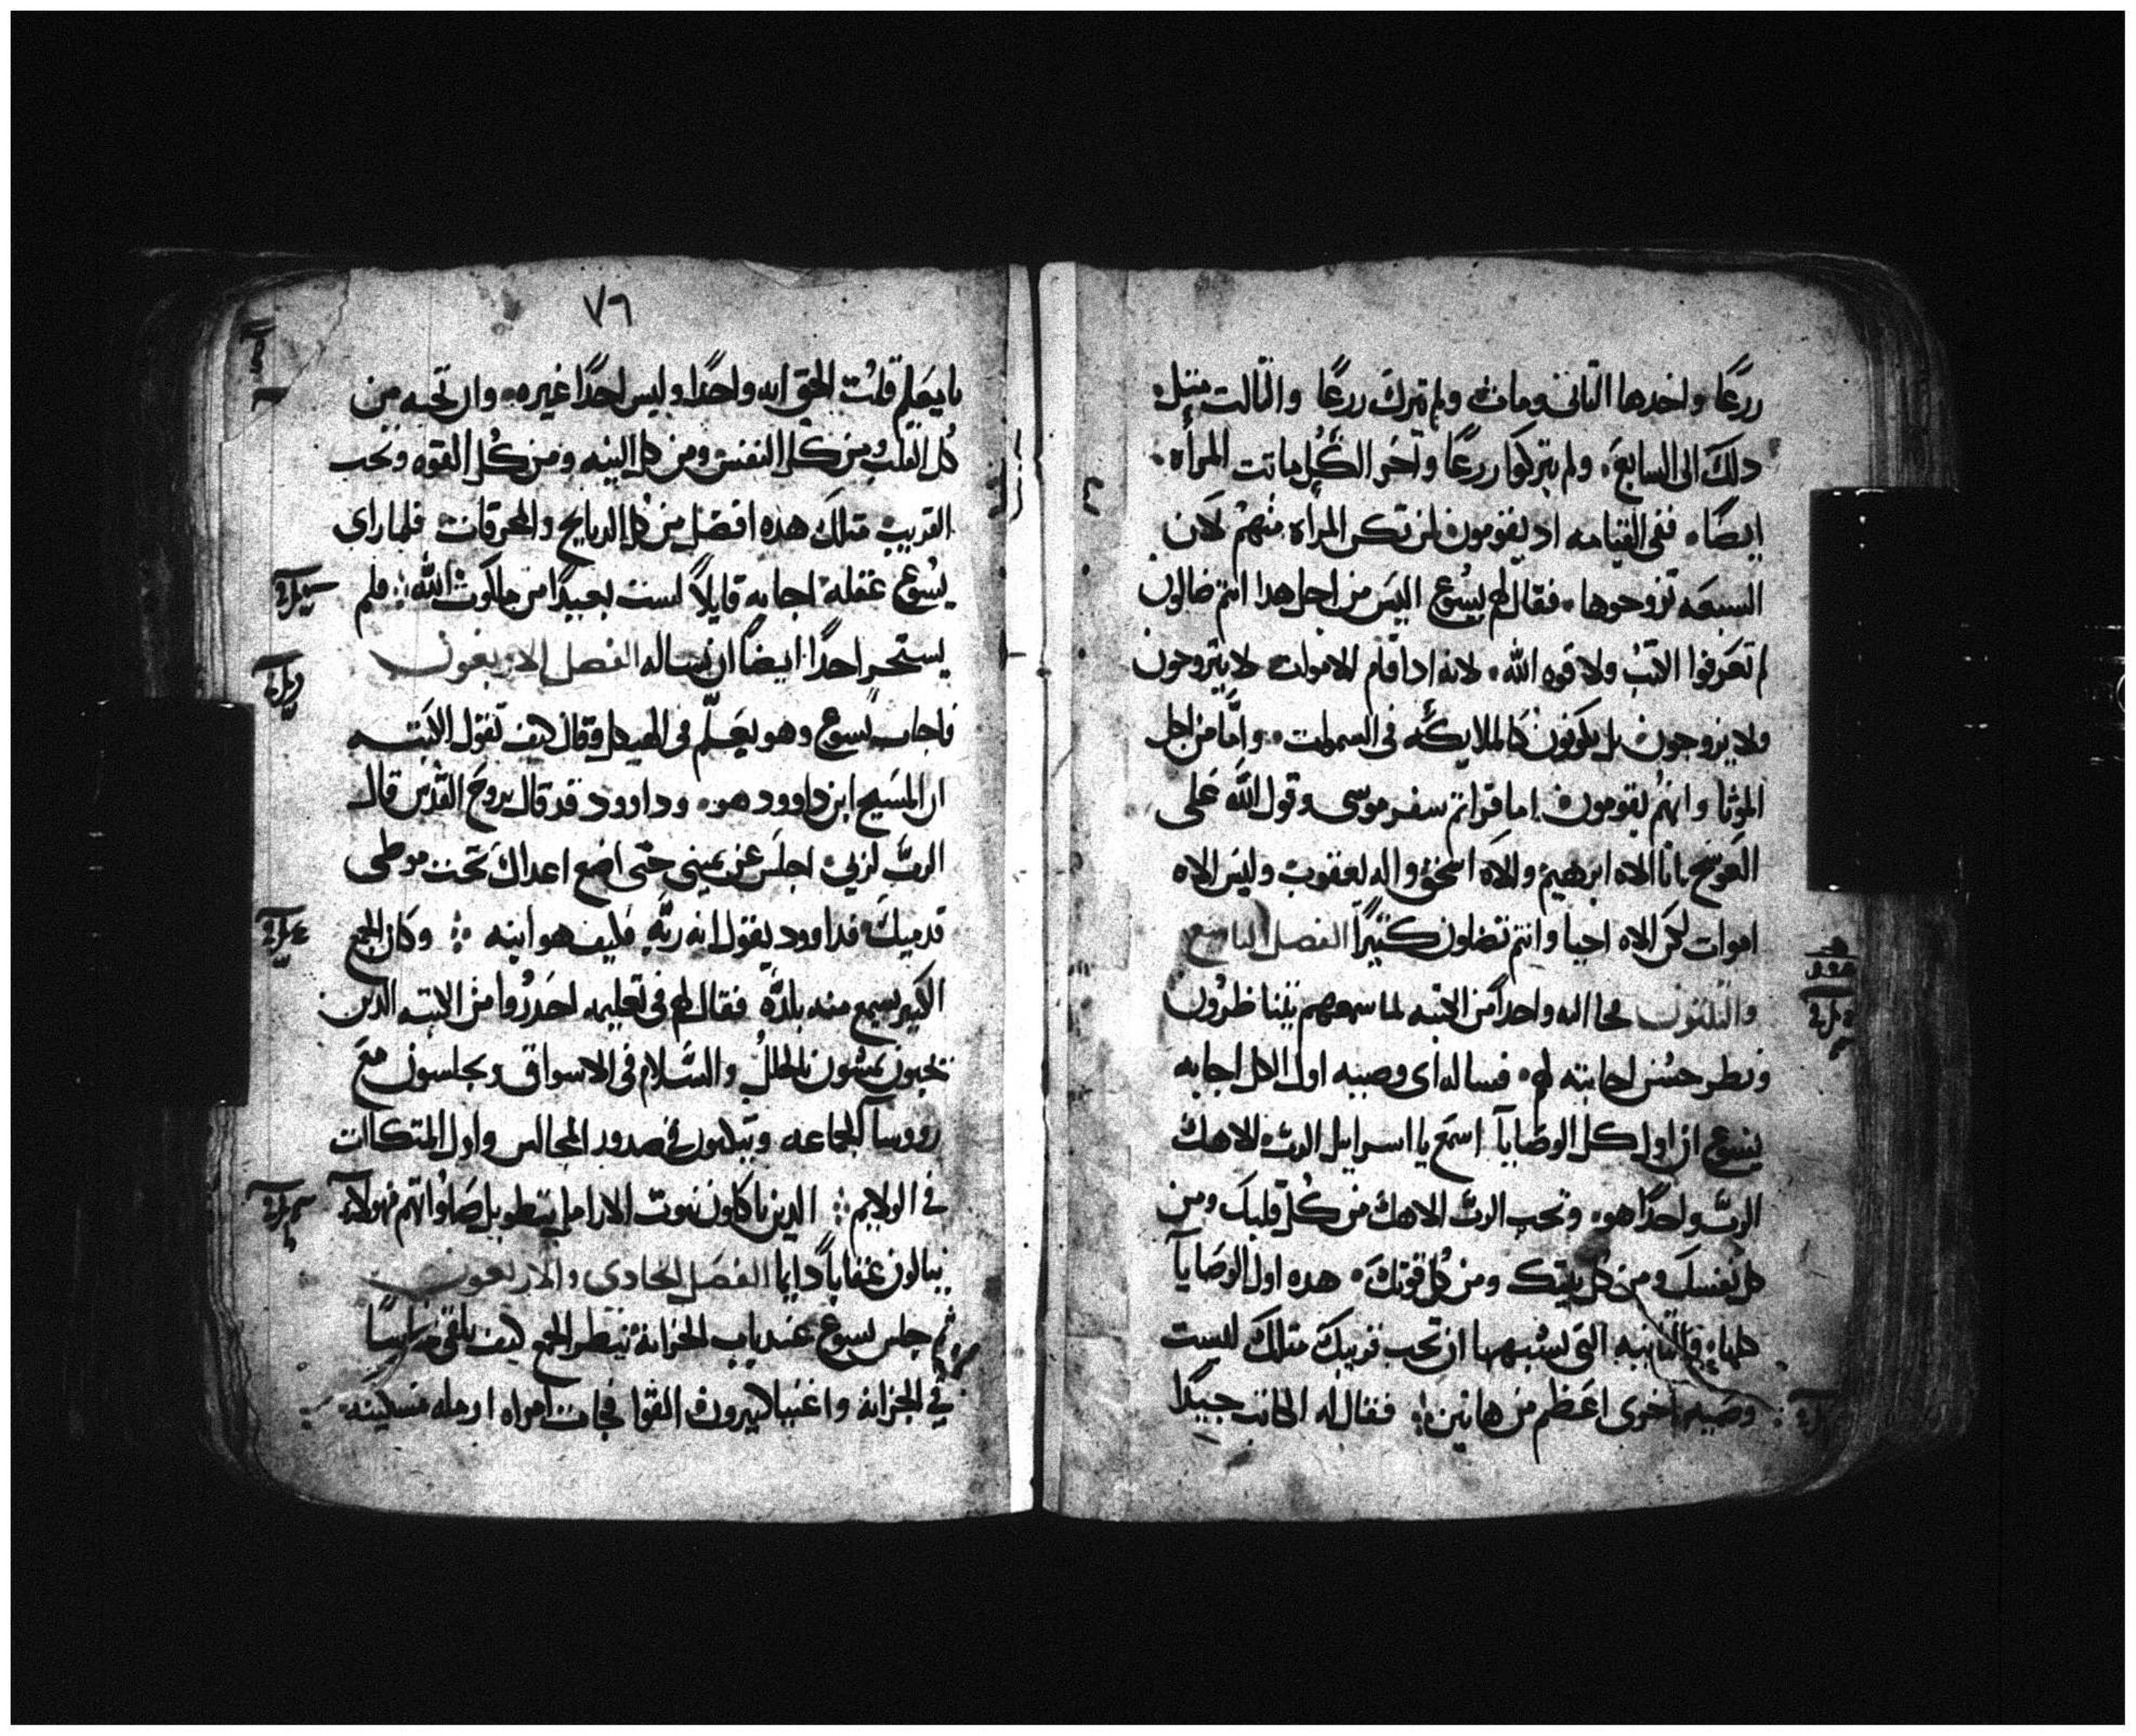 زرعًا واخدها الثانى ومات ولم يترك زرعًا والثالث مثل
دلك الى السابع ولم يتركوا زرعًا واخر الكل ماتت المراه
ايضًا ففى القيامه اد يقومون لمن تكن المراه منهم لان
السبعه تزوجوها فقال لهم يسوع اليس من اجل هدا انتم ضالون
لم تعرفوا الكتب ولا قوه الله لانه ادا قام الاموات لا يتزوجون
ولا يزوجون بل يكونون كالملايكه فى السموات واما من اجل
الموتا وانهم يقومون اما قراتم سفر موسى وقول الله على
العوسج انا الاه ابرهيم والاه اسحق واله يعقوب وليس الاه
اموات لكن الاه احيا وانتم تضلون كثيرًا الفصل التاسع
والتلتون فجا اليه واحدًا من الكتبه لما سمعهم يتناظرون
ونظر حسن اجابته لهم فساله اى وصيه اول الكل اجابه
يسوع ان اول كل الوصايا اسمع يا اسراييل الرب الاهك
الرب واحدًا هو وتحب الرب الاهك من كل قلبك ومن
كل نفسك ومن كل نيتك ومن كل قوتك هده اول الوصايا
كلها والثانيه التى تشبهها ان تحب قريبك مثلك ليست
وصيه اخرى اعظم من هاتين فقال له الكاتب جيدًا
٧٦
يا معلم قلت الحق انه واحدًا وليس احدًا غيره وان تحبه من
كل القلب ومن كل النفس ومن كل النيه ومن كل القوه وتحب
القريب مثلك هذه افضل من كل الدبايح والمحرقات فلما راى
يسوع عقله اجابه قايلاً لست بعيدًا من ملكوت الله فلم
يستجر احدًا ايضًا ان يساله الفصل الاربعون
فاجاب يسوع وهو يعلم فى الهيكل وقال كيف تقول الكتبه
ان المسيح ابن داوود هو وداوود قد قال بروح القدس قال
الرب لربي اجلس عن يمينى حتى اضع اعداك تحت موطى
قدميك فداوود يقول انه ربه فكيف هو ابنه وكان الجمع
الكبير يسمع منه بلده فقال لهم فى تعليمه احدروا من الكتبه الدين
يحبون يمشون بالحلل والسلام فى الاسواق ويجلسون مع
رووسا الجماعه ويتكون في صدور المجالس واول المتكاات
في الولايم الدين ياكلون بيوت الارامل بتطويل صلواتهم فهولاء
ينالون عقابًا دايما الفصل الحادى والاربعون
ثم جلس يسوع عند باب الخزانه ينظر الجمع كيف يلقى نحاسًا
في الخزانه واغنيا كثيرون القوا فجات امراه ارمله مسكينه